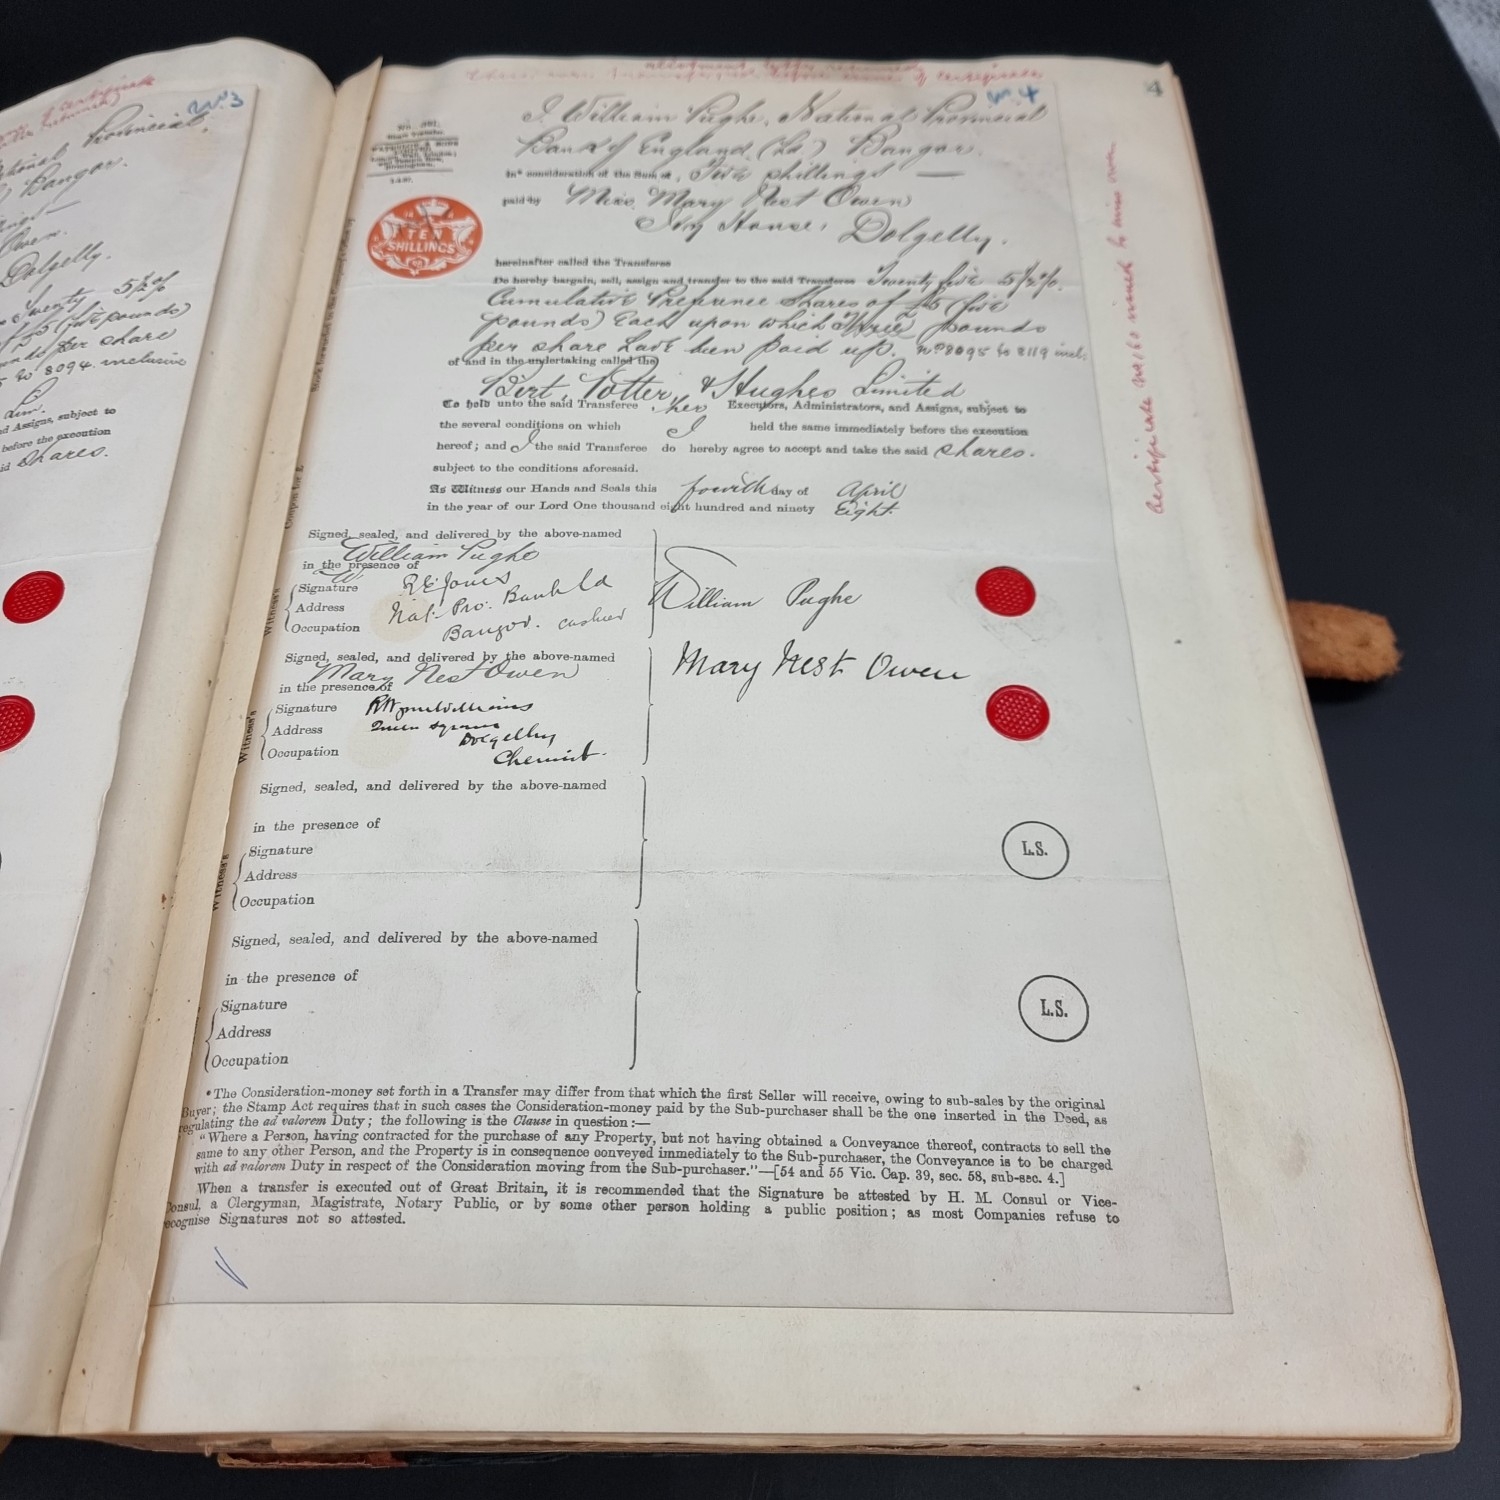 No 3
Provincial
Bangor.
Owen.
Dolgelly.
Twenty 5½%
£5 (five pounds)
per share
to 8094 inclusive
Lim.
and Assigns, subject to
before the execution
said shares.
allotment letter returned
No. 4
4
I William Pughe, National Provincial
Bank of England (Ld) Bangor.
In* consideration of the Sum of, Five shillings —
paid by Miss Mary Nest Owen
Ivy House, Dolgelly.
TEN
SHILLINGS
hereinafter called the Transferee
Do hereby bargain, sell, assign and transfer to the said Transferee Twenty five 5½%
Cumulative Preference Shares of £5 (five
pounds) Each upon which Three pounds
per share have been paid up. No 8095 to 8119 incl.
of and in the undertaking called the
Bert, Potter, & Hughes Limited
To hold unto the said Transferee her Executors, Administrators, and Assigns, subject to
the several conditions on which I held the same immediately before the execution
hereof; and I the said Transferee do hereby agree to accept and take the said shares.
subject to the conditions aforesaid.
As Witness our Hands and Seals this fourth day of April
in the year of our Lord One thousand eight hundred and ninety Eight.
Signed, sealed, and delivered by the above-named
William Pughe
in the presence of
Witness's
Signature R E Jones
Address Nat. Pro. Bank Ld
Bangor.
Occupation cashier
William Pughe
Signed, sealed, and delivered by the above-named
Mary Nest Owen
in the presence of
Witness's
Signature
Address Queen Square
Dolgelley
Occupation Chemist.
Mary Nest Owen
Signed, sealed, and delivered by the above-named
in the presence of
Witness's
Signature
Address
Occupation
L.S.
Signed, sealed, and delivered by the above-named
in the presence of
Signature
Address
Occupation
L.S.
*The Consideration-money set forth in a Transfer may differ from that which the first Seller will receive, owing to sub-sales by the original
Buyer; the Stamp Act requires that in such cases the Consideration-money paid by the Sub-purchaser shall be the one inserted in the Deed, as
regulating the ad valorem Duty; the following is the Clause in question:—
"Where a Person, having contracted for the purchase of any Property, but not having obtained a Conveyance thereof, contracts to sell the
same to any other Person, and the Property is in consequence conveyed immediately to the Sub-purchaser, the Conveyance is to be charged
with ad valorem Duty in respect of the Consideration moving from the Sub-purchaser."—[54 and 55 Vic. Cap. 39, sec. 58, sub-sec. 4.]
When a transfer is executed out of Great Britain, it is recommended that the Signature be attested by H. M. Consul or Vice-
Consul, a Clergyman, Magistrate, Notary Public, or by some other person holding a public position; as most Companies refuse to
recognise Signatures not so attested.
Certificate No 160 issued to Miss Owen